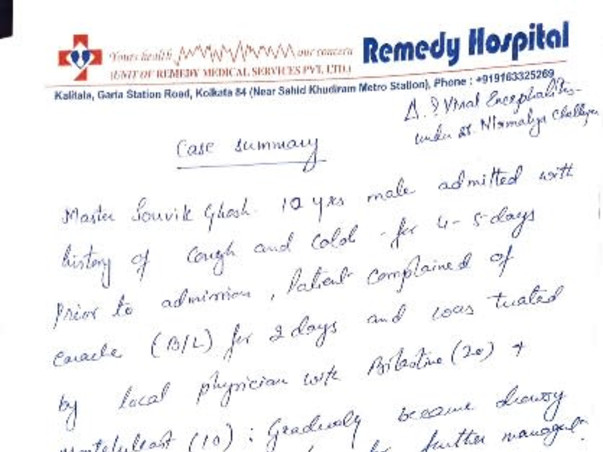 Your health our concern
Remedy Hospital
(UNIT OF REMEDY MEDICAL SERVICES PVT. LTD.)
Kalitala, Garia Station Road, Kolkata 84 (Near Sahid Khudiram Metro Station), Phone : +919163325269
Δ. ? Viral Encephalitis
under Dr. Nirmalya
Case summary
Master Souvik Ghosh 10 yrs male admitted with
history of cough and cold - for 4-5 days
prior to admission, Patient complained of
earache (B/L) for 2 days and was treated
by local physician with Bilastine (20) +
Montelukast (10) ; Gradually became drowsy
for further managemt.